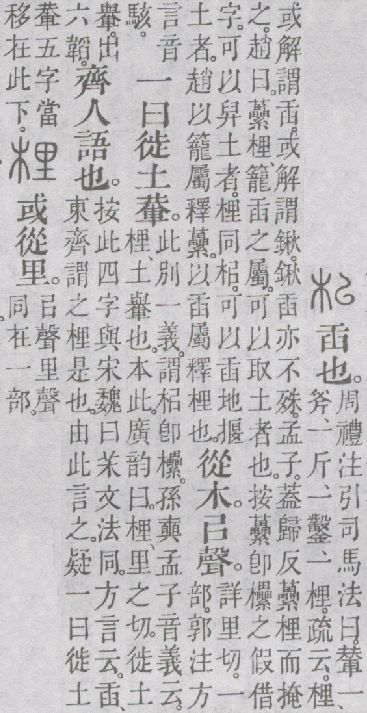 㭒 臿也。
周禮注引司馬法曰。輂一
斧、一斤、一鑿、一梩。疏云。梩、
或解謂臿。或解謂鍬。鍬臿亦不殊。孟子。蓋歸反虆梩而掩
之。趙曰。虆梩、籠臿之屬。可以取土者也。按虆卽欙之假借
字。可以舁土者。梩同㭒。可以臿地揠
土者。趙以籠屬釋虆。以臿屬釋梩也。
從木㠯聲。
詳里切。一
部。郭注方
言音
駭。
一曰徙土輂。
此別一義。謂㭒卽欙。孫奭孟子音義云。
梩、土轝也。本此。廣韵曰。梩、里之切。徙土
轝。出
六韜。
齊人語也。
按此四字與宋魏曰苿文法同。方言云。臿、
東齊謂之梩是也。由此言之。疑一曰徙土
輂五字當
移在此下。
梩 或從里。
㠯聲里聲
同在一部。